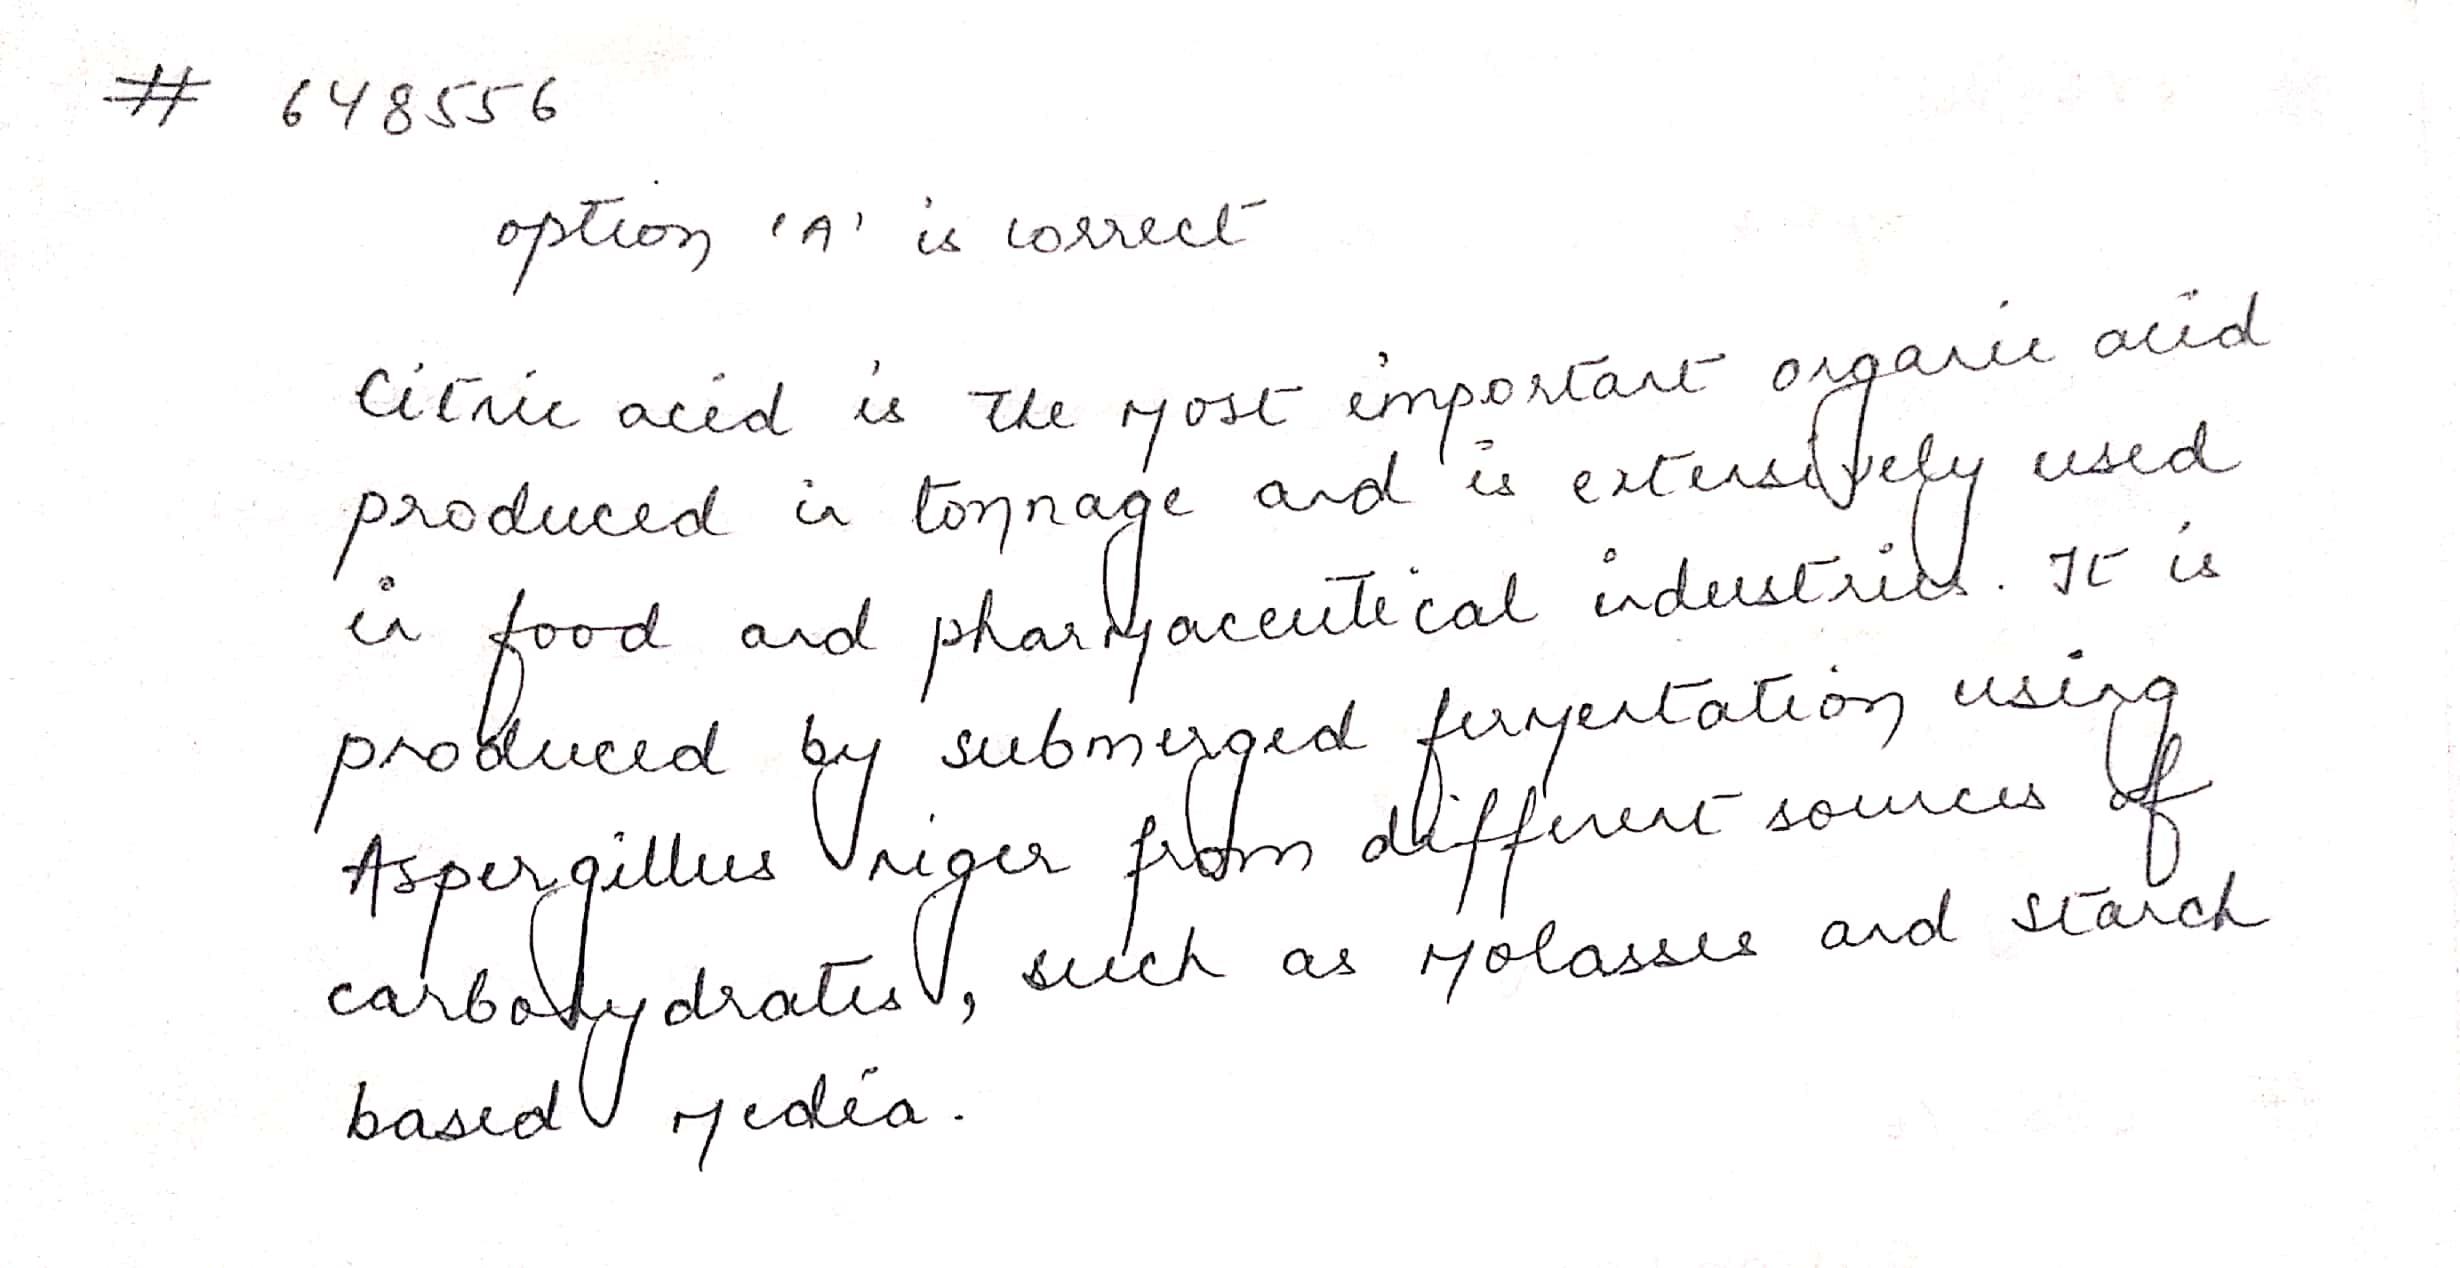 # 648556
option 'A' is correct
Citric acid is the most important organic acid
produced in tonnage and is extensively used
in food and pharmaceutical industries. It is
produced by submerged fermentation using
Aspergillus niger from different sources of
carbohydrates, such as molasses and starch
based media.